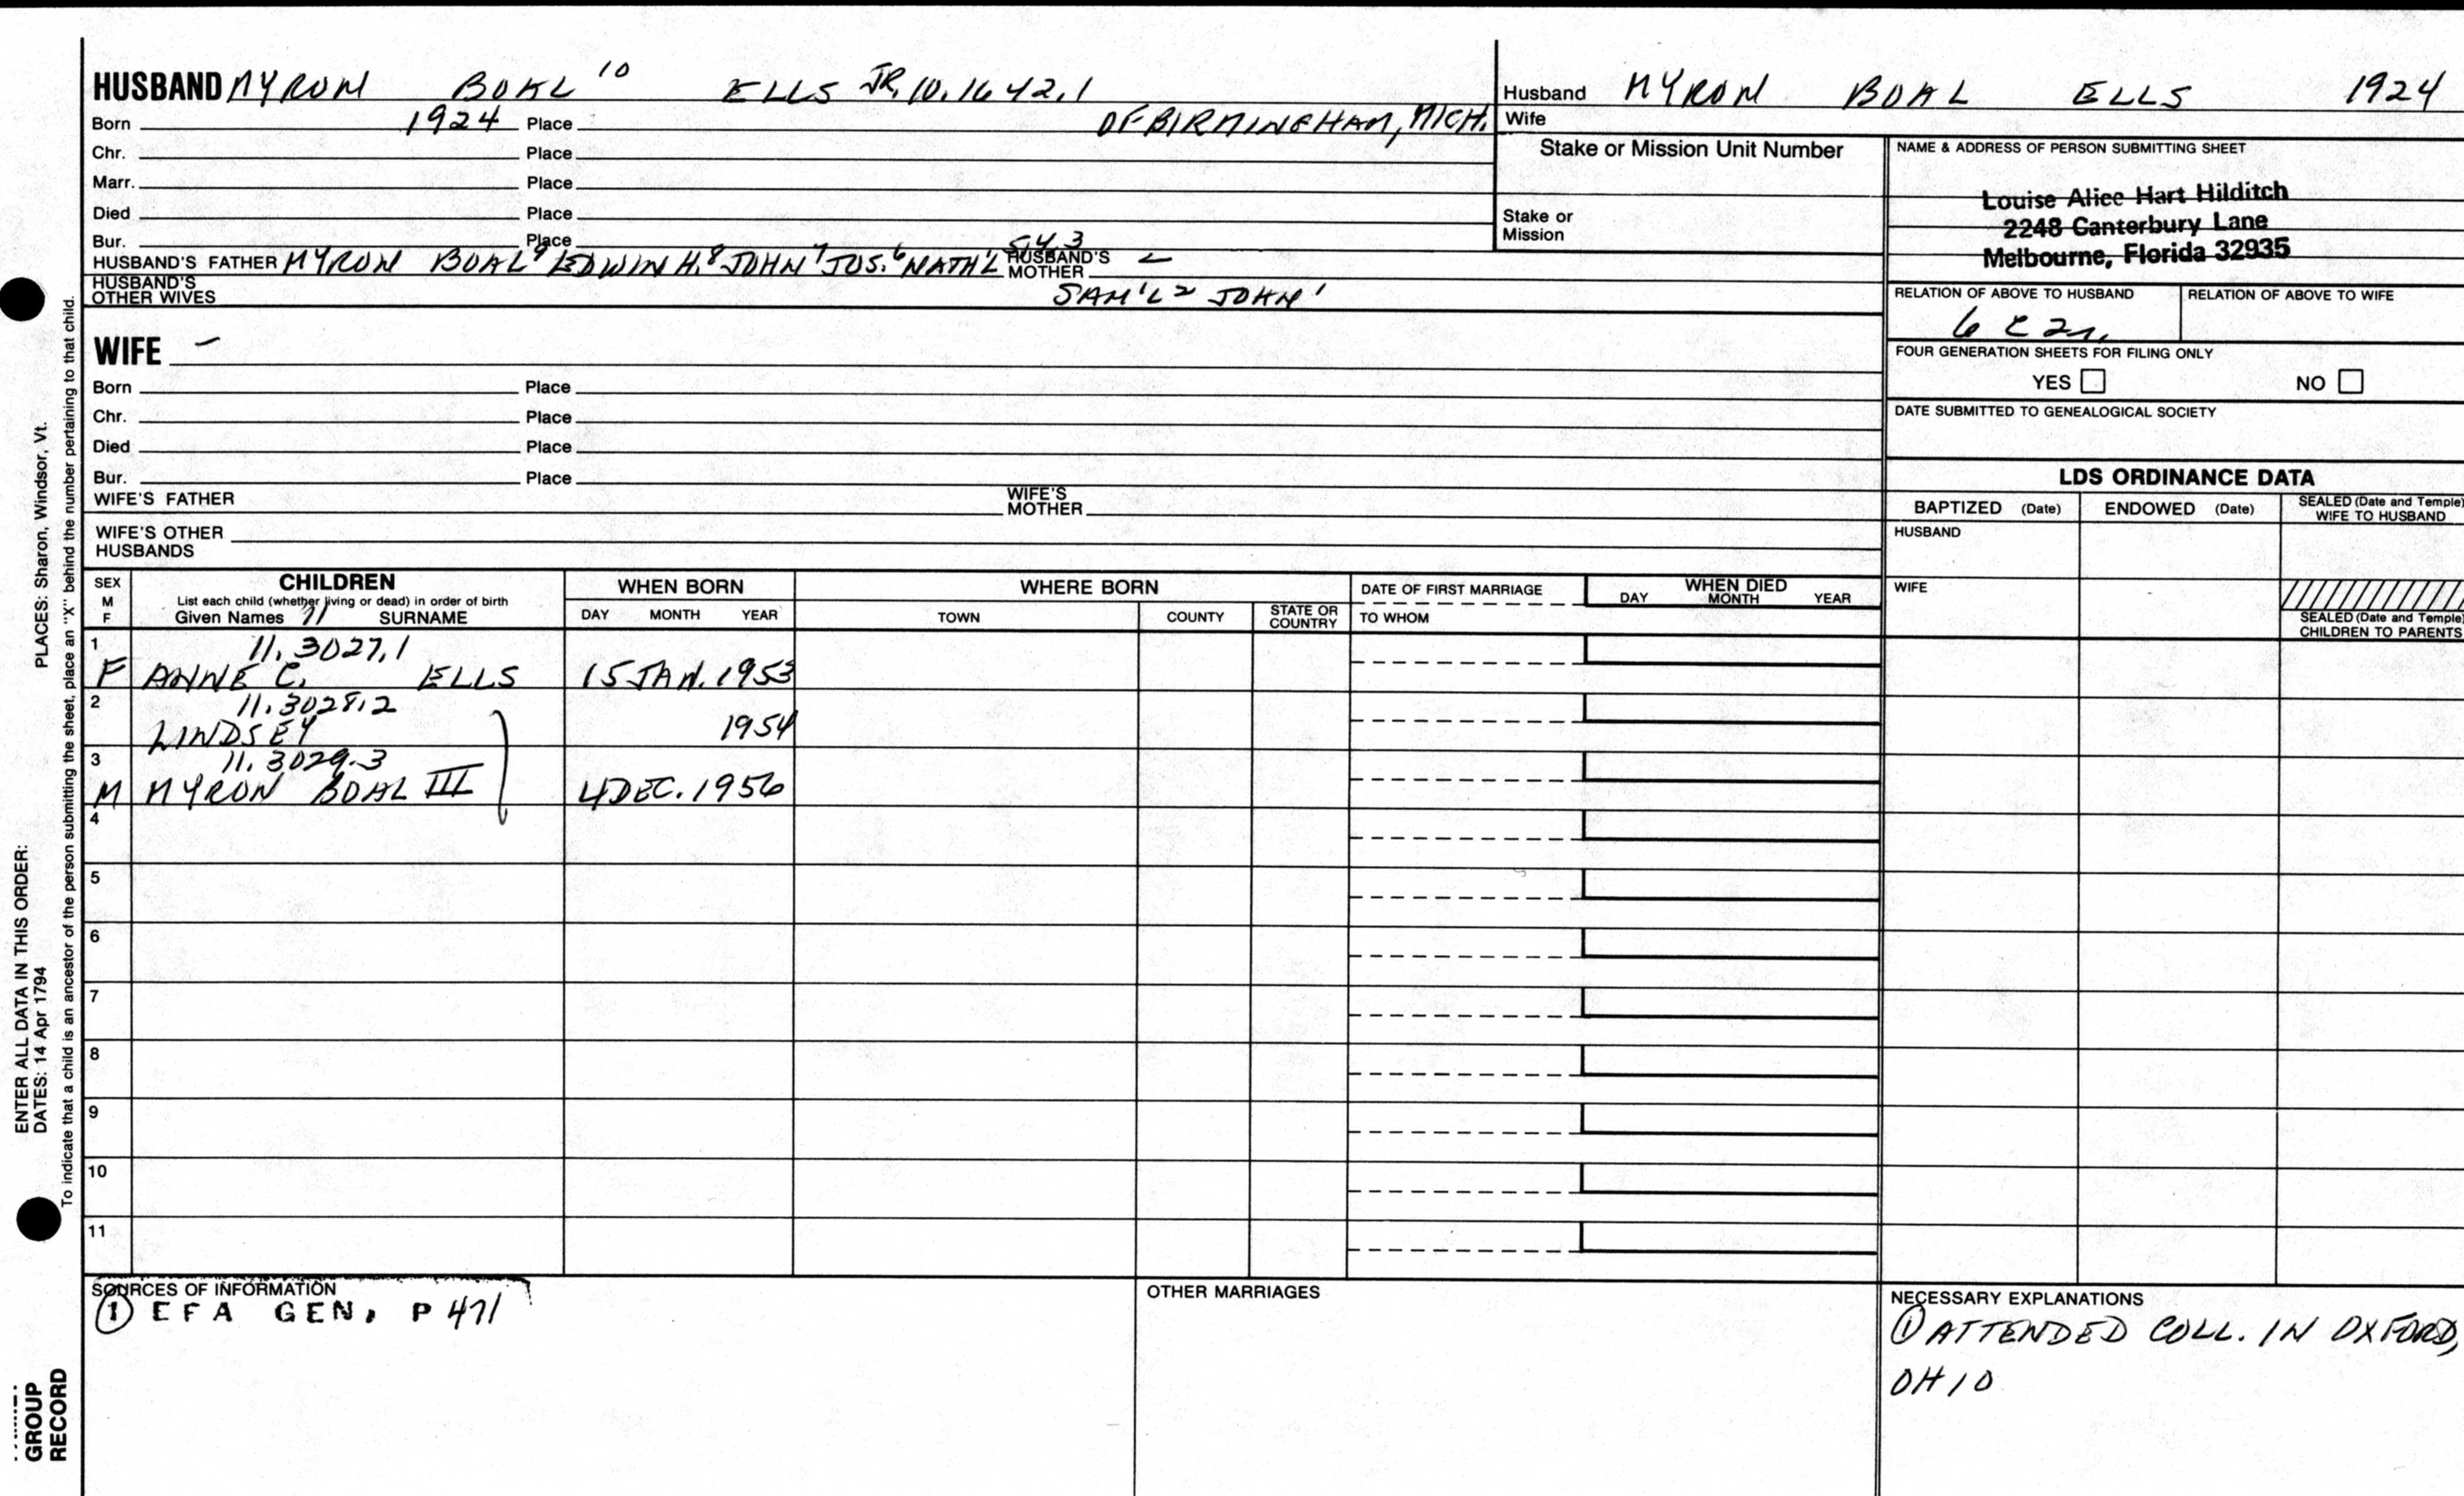 HUSBAND MYRON BOAL 10 ELLS JR. 10.1642.1
Born 1924 Place OF BIRMINGHAM, MICH.
Chr. Place
Marr. Place
Died Place
Bur. Place
HUSBAND'S FATHER MYRON BOAL 9 EDWIN H. 8 JOHN 7 JOS. 6 NATH'L 5 4 3 HUSBAND'S MOTHER –
SAM'L 2 JOHN 1
HUSBAND'S OTHER WIVES
Husband MYRON BOAL ELLS 1924
Wife
Stake or Mission Unit Number
Stake or Mission
NAME & ADDRESS OF PERSON SUBMITTING SHEET
Louise Alice Hart Hilditch
2248 Canterbury Lane
Melbourne, Florida 32935
RELATION OF ABOVE TO HUSBAND RELATION OF ABOVE TO WIFE
6 C 2r.
FOUR GENERATION SHEETS FOR FILING ONLY
YES NO
DATE SUBMITTED TO GENEALOGICAL SOCIETY
WIFE –
Born Place
Chr. Place
Died Place
Bur. Place
WIFE'S FATHER WIFE'S MOTHER
WIFE'S OTHER HUSBANDS
LDS ORDINANCE DATA
BAPTIZED (Date) ENDOWED (Date) SEALED (Date and Temple) WIFE TO HUSBAND
HUSBAND
WIFE
SEALED (Date and Temple) CHILDREN TO PARENTS
SEX M F
CHILDREN
List each child (whether living or dead) in order of birth
Given Names 11 SURNAME
WHEN BORN
DAY MONTH YEAR
WHERE BORN
TOWN COUNTY STATE OR COUNTRY
DATE OF FIRST MARRIAGE
TO WHOM
WHEN DIED
DAY MONTH YEAR
1 11.3027.1
F ANNE C. ELLS 15 JAN. 1953
2 11.3028.2
LINDSEY 1954
3 11.3029.3
M MYRON BOAL III 4 DEC. 1956
4
5
6
7
8
9
10
11
SOURCES OF INFORMATION
① EFA GEN. P 471
OTHER MARRIAGES
NECESSARY EXPLANATIONS
① ATTENDED COLL. IN OXFORD,
OHIO
ENTER ALL DATA IN THIS ORDER:
DATES: 14 Apr 1794
PLACES: Sharon, Windsor, Vt.
To indicate that a child is an ancestor of the person submitting the sheet, place an "X" behind the number pertaining to that child.
GROUP
RECORD